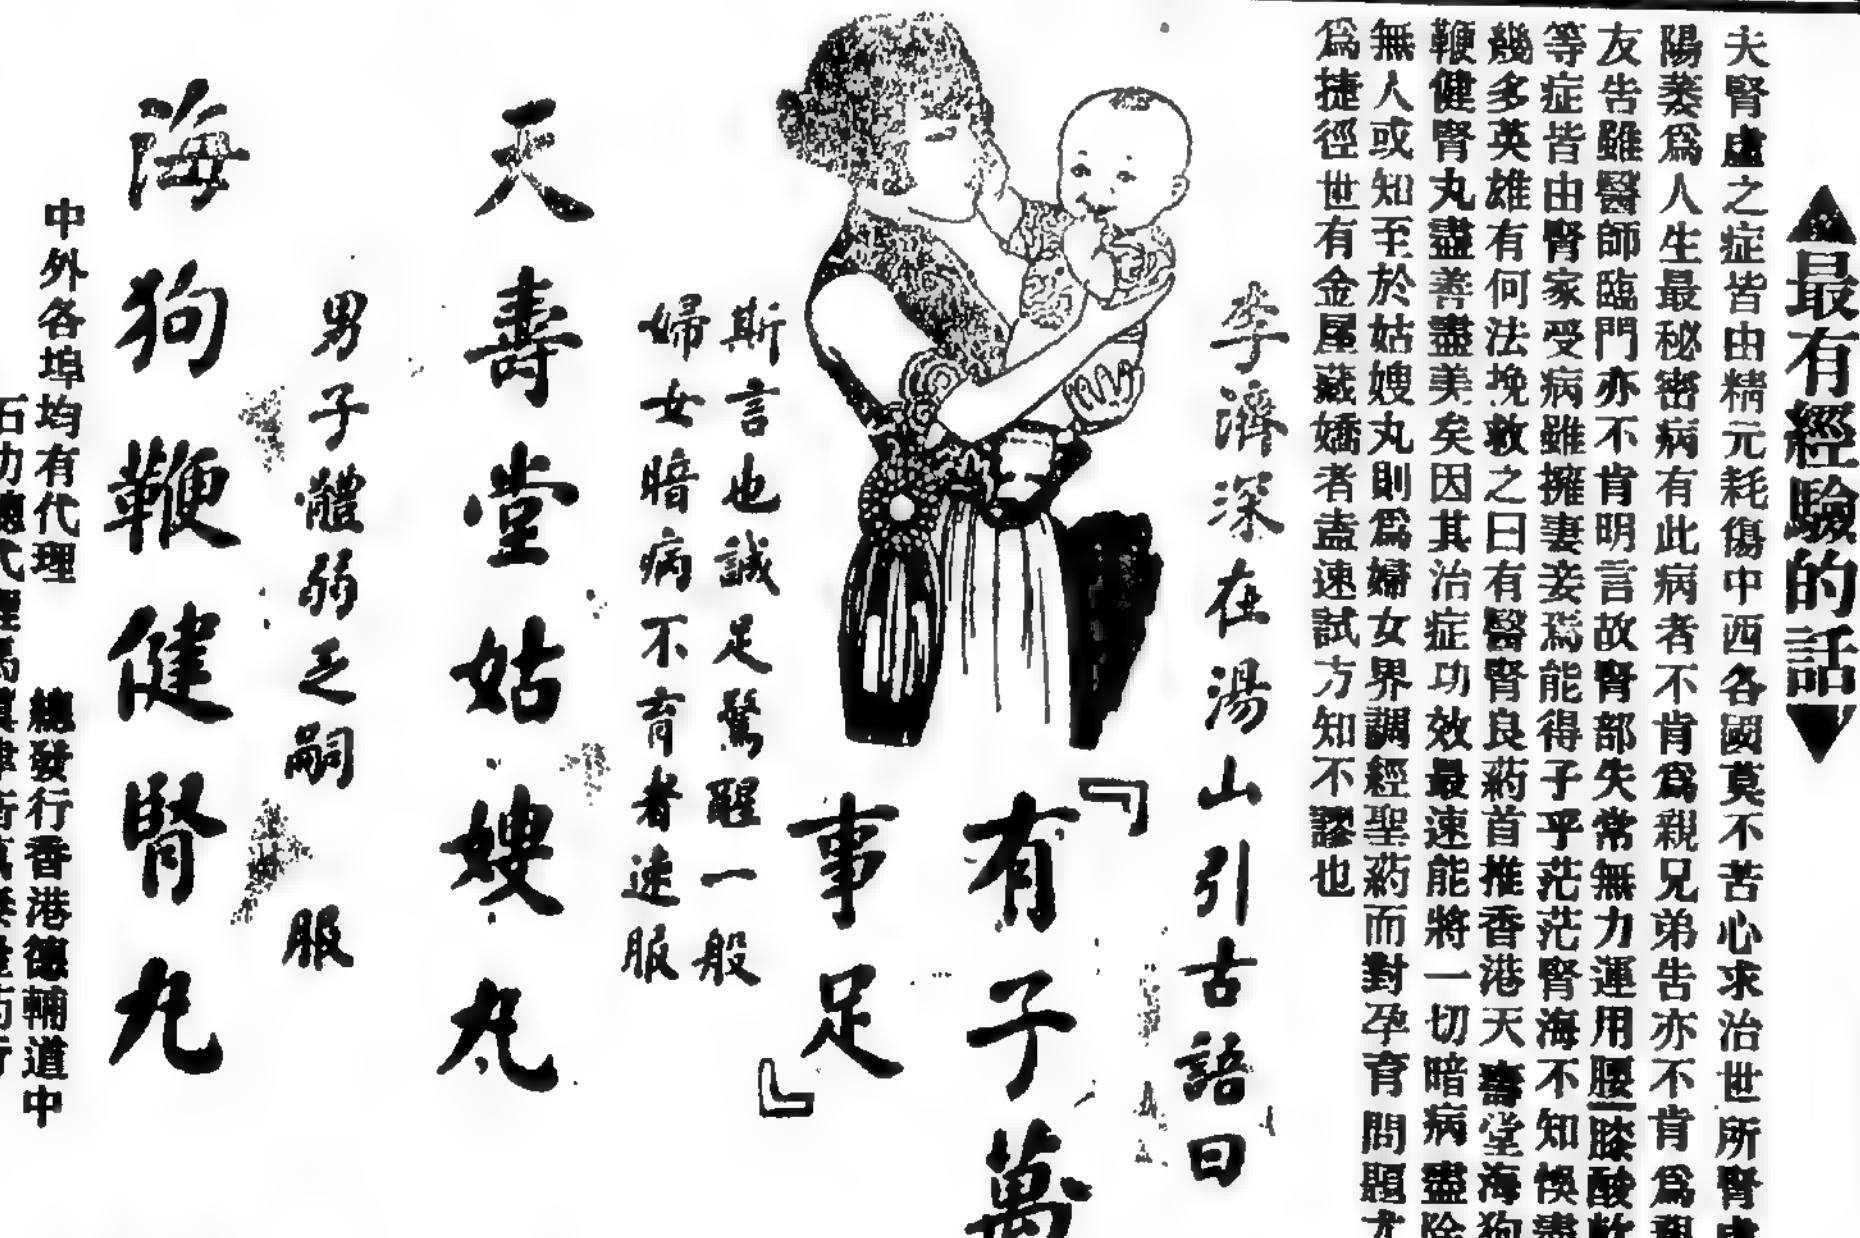 ▲最有經驗的話▼
夫腎虛之症皆由精元耗傷中西各國莫不苦心求治世所腎虛
陽萎爲人生最秘密病有此病者不肯爲親兄弟告亦不肯爲親
友告雖醫師臨門亦不肯明言故腎部失常無力運用腰膝酸軟
等症皆由腎家受病雖擁妻妾焉能得子乎茫茫腎海不知悞盡
幾多英雄有何法挽救之曰有醫腎良葯首推香港天壽堂海狗
鞭健腎丸盡善盡美矣因其治症功效最速能將一切暗病盡除
無人或知至於姑嫂丸則爲婦女界調經聖葯而對孕育問題尤
爲捷徑世有金屋藏嬌者盍速試方知不謬也
李濟深在湯山引古語曰
『有子萬
事足』
斯言也誠足驚醒一般
婦女暗病不育者速服
天壽堂姑嫂丸
男子體弱乏嗣 服
海狗鞭健腎丸
中外各埠均有代理 總發行香港德輔道中